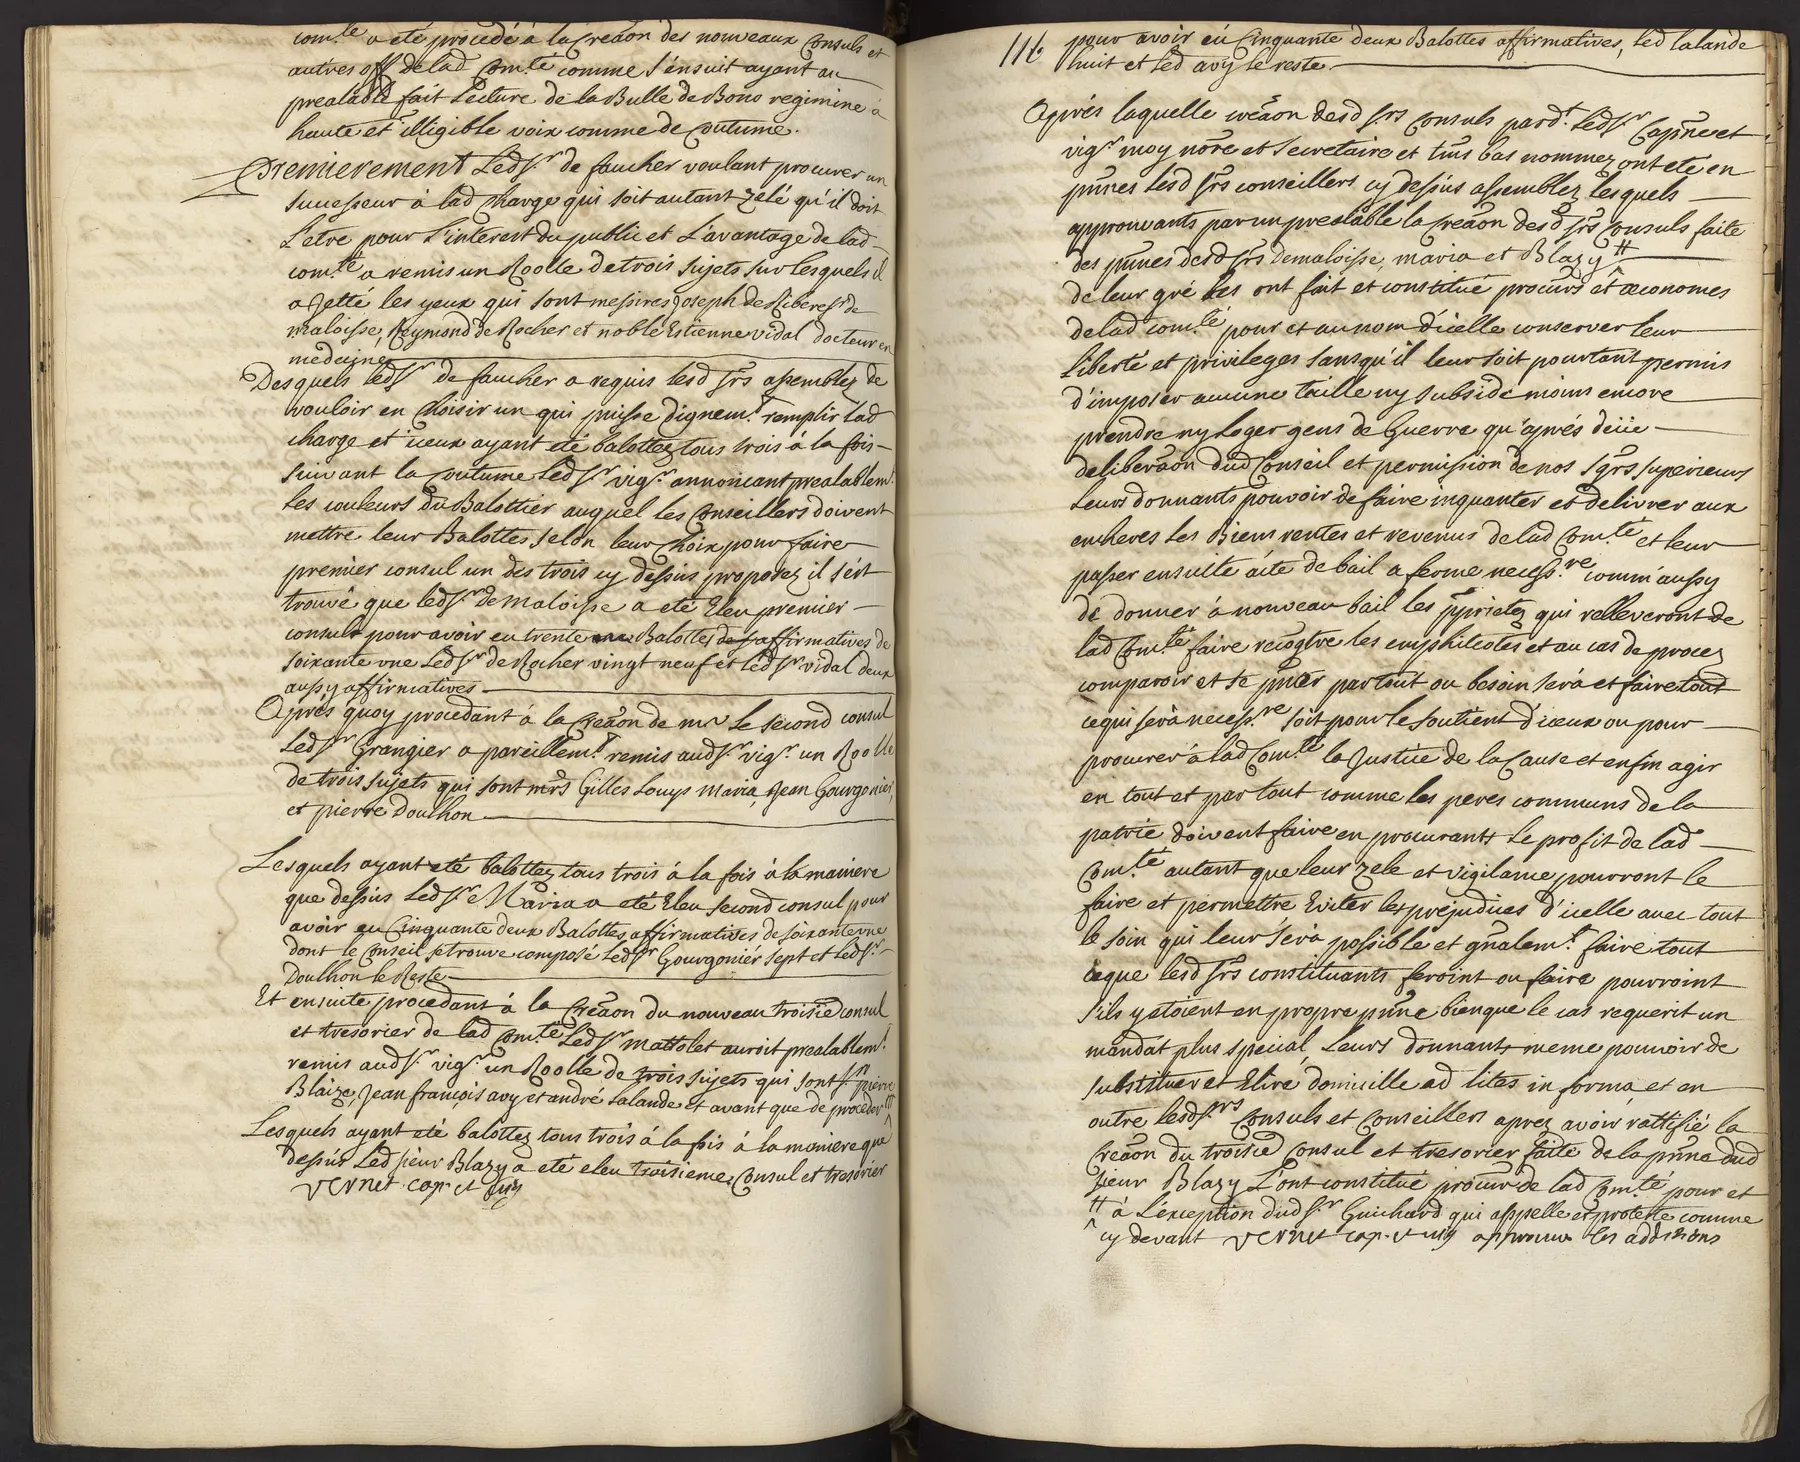 com.te a eté procedé a la Creaõn des nouveaux Consuls et
autres off. de lad Com.te comme s'ensuit ayant au
prealable fait lecture de la Bulle de Bono regimine a
haute et illigible voix comme de Coutume.
Premierement Led S.r de faucher voulant procurer un
successeur à lad Charge qui soit autant zelé qu'il doit
L'etre pour L'interest du public et L'avantage de lad
com.té a remis un Roolle de trois sujets sur lesquels il
a Jetté les yeux qui sont messires Joseph de Riberes S.r de
maloisse, Reymond de Rocher et noble Estienne vidal docteur en
medecine
Desquels led S.r de faucher a requis lesd Srs assemblez de
vouloir en Choisir un qui puisse dignem.t remplir lad
charge et iceux ayant eté balottez tous trois à la fois
suivant la Coutume led S.r vig.r annoncant prealablem.t
les couleurs du Balottier auquel les Conseillers doivent
mettre leur Balottes selon leur Choix pour faire
premier consul un des trois cy dessus proposez il s'est
trouvé que led S.r de maloisse a eté Eleu premier
consul pour avoir eu trente Balottes affirmatives de
soixante une Led S.r de Rocher vingt neuf et led S.r vidal deux
aussy affirmatives
Après quoy procedant à la Creaõn de mr Le second consul
Led S.r Grangier a pareillem.t remis aud S.r vig.r un Roolle
de trois sujets qui sont mrs Gilles Louys maria, Jean Gourgonier,
et pierre Doulhon
Lesquels ayant eté balottez tous trois á la fois à la maniere
que dessus Led S.r Maria a eté Eleu second consul pour
avoir eu Cinquante deux Balottes affirmatives de soixante une
dont le Conseil se trouve composé led S.r Gourgonier sept et led S.r
Doulhon le Reste
Et ensuite procedant à la Creaõn du nouveau troisiẽ consul
et tresorier de lad Com.te Led S.r mattolet auroit prealablem.t
remis aud S.r vig.r un Roolle de trois sujets qui sont S.rs pierre
Blaize, Jean françois avy et andré Lalande et avant que de proceder
Lesquels ayant eté balottez tous trois á la fois à la maniere que
dessus Led sieur Blazy a eté eleu troisieme Consul et tresorier
Vernet cap. et vig
116
pour avoir eú Cinquante deux Balottes affirmatives, Led Lalande
huit et Led avy le reste
Après laquelle creaõn desd Srs Consuls pard.t Led S.r Cap̃ne et
vig.r moy nõre et secretaire et tms bas nommez ont eté en
pñnes lesd Srs conseillers cy dessus assemblez lesquels
approuvants par un prealable la Creaõn desd Srs Consuls faite
des pñnes desd Srs de maloisse, maria et Blazy #
de leur gré les ont fait et constitué procũrs et œconomes
de lad com.té pour et au nom d'icelle conserver leur
liberté et privileges sans qu'il leur soit pourtant permis
d'imposer aucune taille ny subside moins encore
prendre ny loger gens de Guerre qu'après deüe
deliberaõn dud Conseil et permission de nos Sgrs superieurs
Leurs donnants pouvoir de faire inquanter et delivrer aux
encheres les Biens rentes et revenus de lad Com.té et leur
passer ensuite acte de bail a ferme necess.re comm'aussy
de donner à nouveau bail les ppríetez qui relleveront de
lad Com.té faire recogtre les emphiteotes et au cas de procez
comparoir et se pñter par tout ou besoin serà et faire tout
ce qui serà necess.re soit pour le soutient d'iceux ou pour
procurer à lad Com.té la Justice de la Cause et enfin agir
en tout et par tout comme les peres communs de la
patrie doivent faire en procurants le profit de lad
Com.té autant que leur zele et vigilance pourront le
faire et permettre Eviter les prejudices d'icelle avec tout
le soin qui leur serà possible et gñalem.t faire tout
ce que lesd Srs constituants feroint ou faire pourroint
s'ils y etoient en propre pñne bienque le cas requerit un
mandat plus special, Leurs donnants meme pouvoir de
substituer et Elire domicille ad lites in forma, et en
outre lesd S.rs Consuls et Conseillers aprez avoir rattifié la
Creaõn du troisiẽ Consul et tresorier faite de la pñne dud
sieur Blazy L'ont constitué procũr de lad Com.té pour et
# à L'exception dud S.r Guichard qui appelle et proteste comme
cy devant Vernet cap. et vig approuve les additions